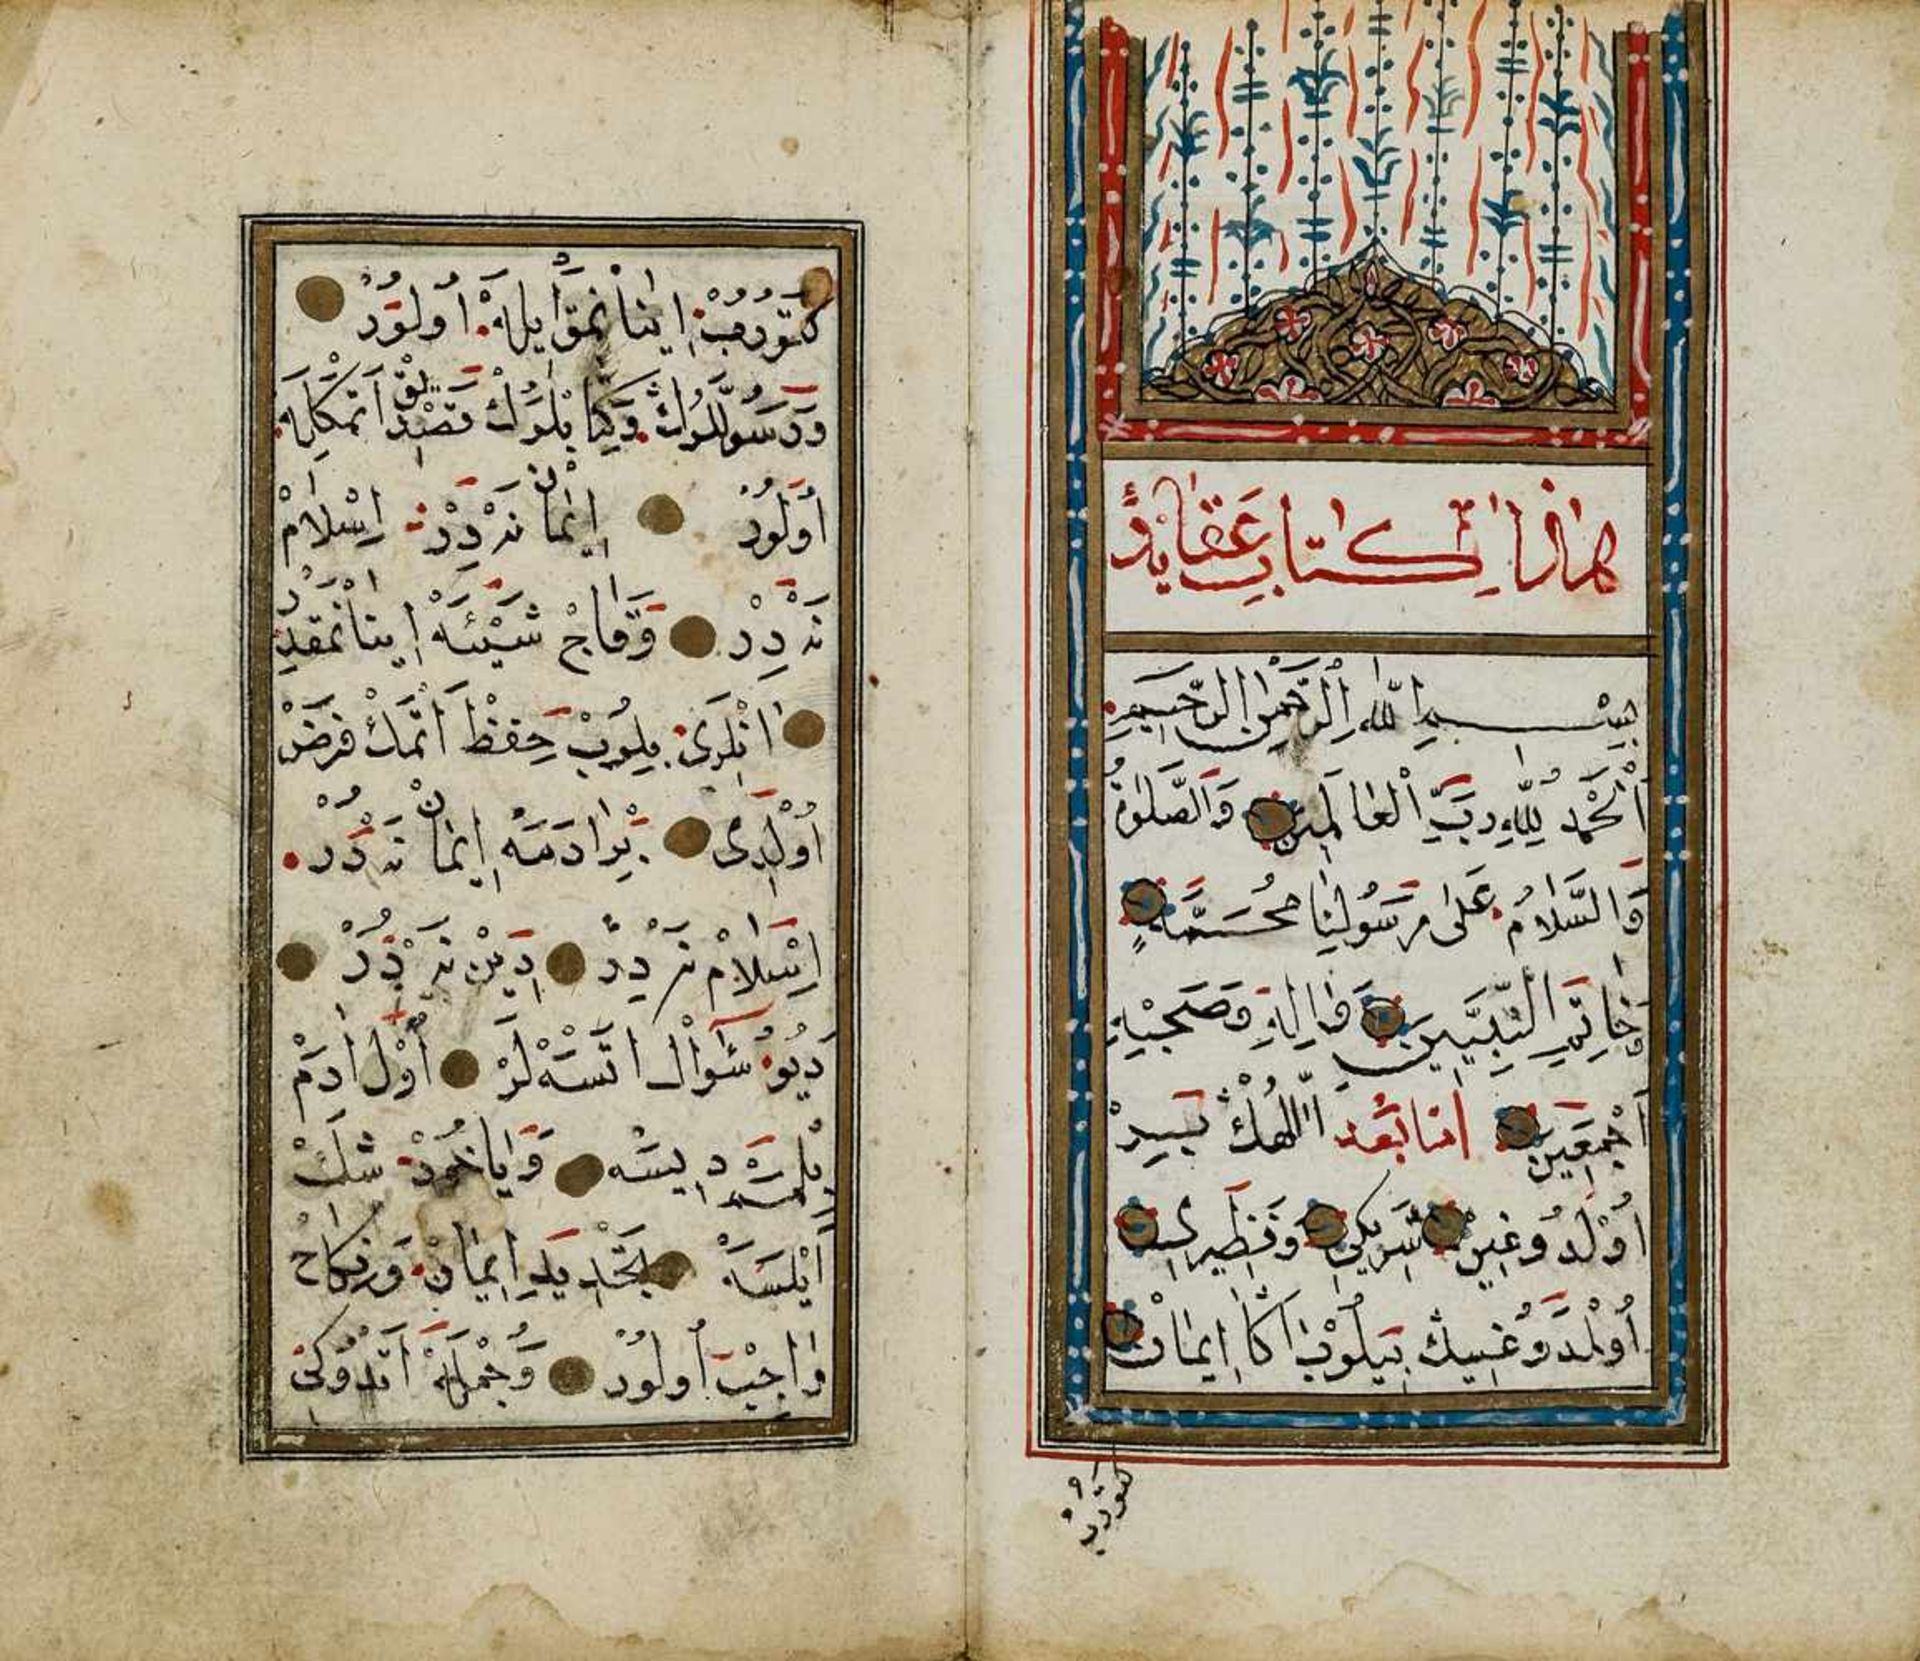 هٰذَا كِتَابُ عَقَايِدْ
بِسْمِ اللّٰهِ الرَّحْمٰنِ الرَّحِيمِ
اَلْحَمْدُ لِلّٰهِ رَبِّ الْعَالَمِينَ وَالصَّلٰوةُ
وَالسَّلَامُ عَلٰى رَسُولِنَا مُحَمَّدٍ
وَخَاتِمِ النَّبِيِّينَ وَاٰلِهِ وَصَحْبِهِ
اَجْمَعِينَ اَمَّا بَعْدُ اَللّٰهُڭ بِيرْ
اُولْدُوغِينْ شَرِيكِى وَنَظِيرِى
اُولْمَدُوغِينِڭ بِيلُوبْ اَڭَا اِيمَانْ
كتورب
كتورب اينانمق ايله اولور
ورسوللرڭ وكتابلرڭ تصديق اتمكله
اولور اِيمَانْ نَدِرْ اِسْلَامْ
نَدِرْ وَقَاچْ شَيْئَه اينانمقدر
انلرى بِلُوبْ حِفْظْ اَتْمَكْ فَرَضْ
اُولْدِى بِرْ ادَمَه اِيمَانْ نَدُرْ
اِسْلَامْ نَدِرْ دِينْ نَدُرْ
دِيُو سُؤَالْ اتْسَهلَرْ اُولْ ادَمْ
بِلْمَمْ دِيسَه وَيَاخُودْ شَكْ
اَيْلَسَه تَجْدِيدِ اِيمَانْ وَنِكَاحْ
وَاجِبْ اُولُورْ وَجُمْلَه